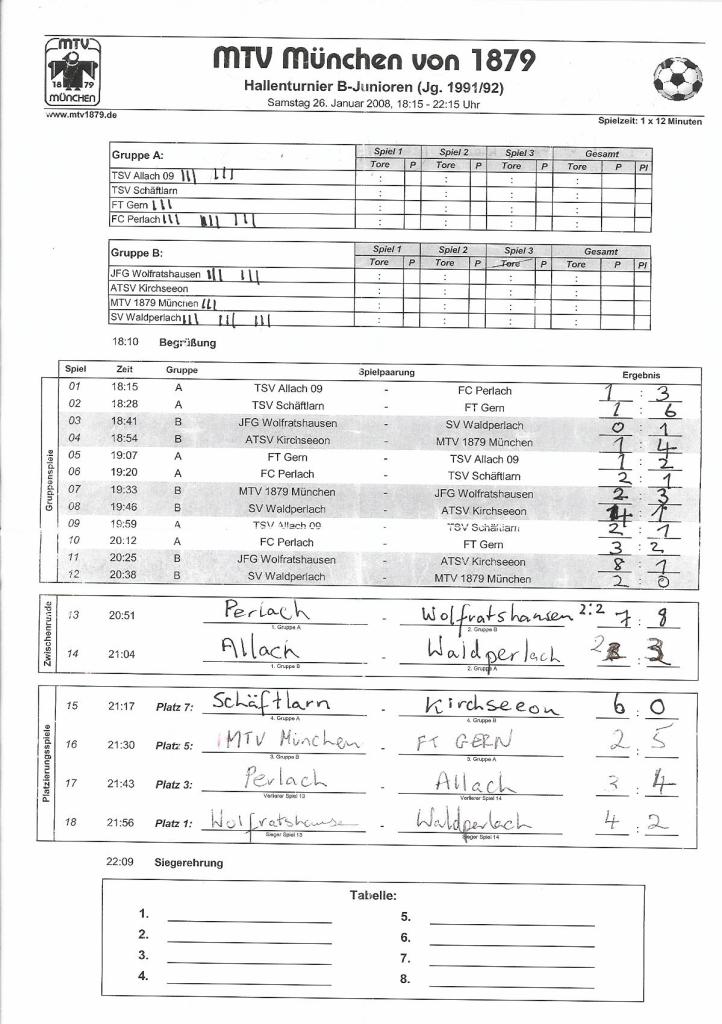 MTV
18 79
MÜNCHEN
www.mtv1879.de
MTV München von 1879
Hallenturnier B-Junioren (Jg. 1991/92)
Samstag 26. Januar 2008, 18:15 - 22:15 Uhr
Spielzeit: 1 x 12 Minuten
Gruppe A: Spiel 1 Spiel 2 Spiel 3 Gesamt
Tore P Tore P Tore P Tore P Pl
TSV Allach 09 : : : :
TSV Schäftlarn : : : :
FT Gern : : : :
FC Perlach : : : :
Gruppe B: Spiel 1 Spiel 2 Spiel 3 Gesamt
Tore P Tore P Tore P Tore P Pl
JFG Wolfratshausen : : : :
ATSV Kirchseeon : : : :
MTV 1879 München : : : :
SV Waldperlach : : : :
18:10 Begrüßung
Spiel Zeit Gruppe Spielpaarung Ergebnis
Gruppenspiele
01 18:15 A TSV Allach 09 - FC Perlach 1 : 3
02 18:28 A TSV Schäftlarn - FT Gern 1 : 6
03 18:41 B JFG Wolfratshausen - SV Waldperlach 0 : 1
04 18:54 B ATSV Kirchseeon - MTV 1879 München 1 : 4
05 19:07 A FT Gern - TSV Allach 09 1 : 2
06 19:20 A FC Perlach - TSV Schäftlarn 2 : 1
07 19:33 B MTV 1879 München - JFG Wolfratshausen 2 : 3
08 19:46 B SV Waldperlach - ATSV Kirchseeon 4 : 1
09 19:59 A TSV Allach 09 - TSV Schäftlarn 2 : 1
10 20:12 A FC Perlach - FT Gern 3 : 2
11 20:25 B JFG Wolfratshausen - ATSV Kirchseeon 8 : 1
12 20:38 B SV Waldperlach - MTV 1879 München 2 : 0
Zwischenrunde
13 20:51 Perlach - Wolfratshausen 2:2 7 : 8
1. Gruppe A 2. Gruppe B
14 21:04 Allach - Waldperlach 2 : 3
1. Gruppe B 2. Gruppe A
Platzierungsspiele
15 21:17 Platz 7: Schäftlarn - Kirchseeon 6 : 0
4. Gruppe A 4. Gruppe B
16 21:30 Platz 5: MTV München - FT GERN 2 : 5
3. Gruppe B 3. Gruppe A
17 21:43 Platz 3: Perlach - Allach 3 : 4
Verlierer Spiel 13 Verlierer Spiel 14
18 21:56 Platz 1: Wolfratshause - Waldperlach 4 : 2
Sieger Spiel 13 Sieger Spiel 14
22:09 Siegerehrung
Tabelle:
1. 5.
2. 6.
3. 7.
4. 8.